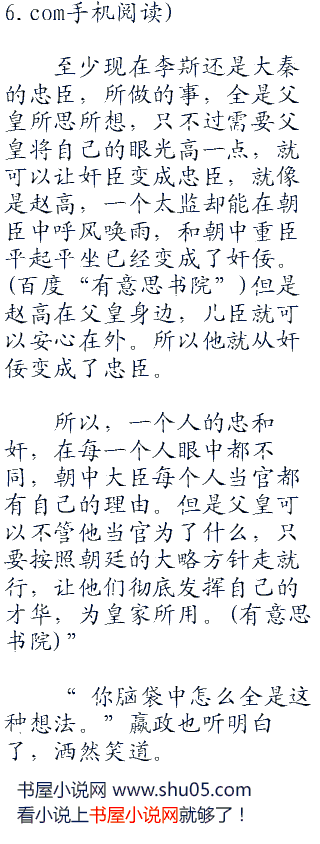 6.com手机阅读)
至少现在李斯还是大秦
的忠臣，所做的事，全是父
皇所思所想，只不过需要父
皇将自己的眼光高一点，就
可以让奸臣变成忠臣，就像
是赵高，一个太监却能在朝
臣中呼风唤雨，和朝中重臣
平起平坐已经变成了奸佞。
(百度“有意思书院”)但是
赵高在父皇身边，儿臣就可
以安心在外。所以他就从奸
佞变成了忠臣。
所以，一个人的忠和
奸，在每一个人眼中都不
同，朝中大臣每个人当官都
有自己的理由。但是父皇可
以不管他当官为了什么，只
要按照朝廷的大略方针走就
行，让他们彻底发挥自己的
才华，为皇家所用。(有意思
书院)”
“你脑袋中怎么全是这
种想法。”嬴政也听明白
了，洒然笑道。
书屋小说网 www.shu05.com
看小说上书屋小说网就够了！